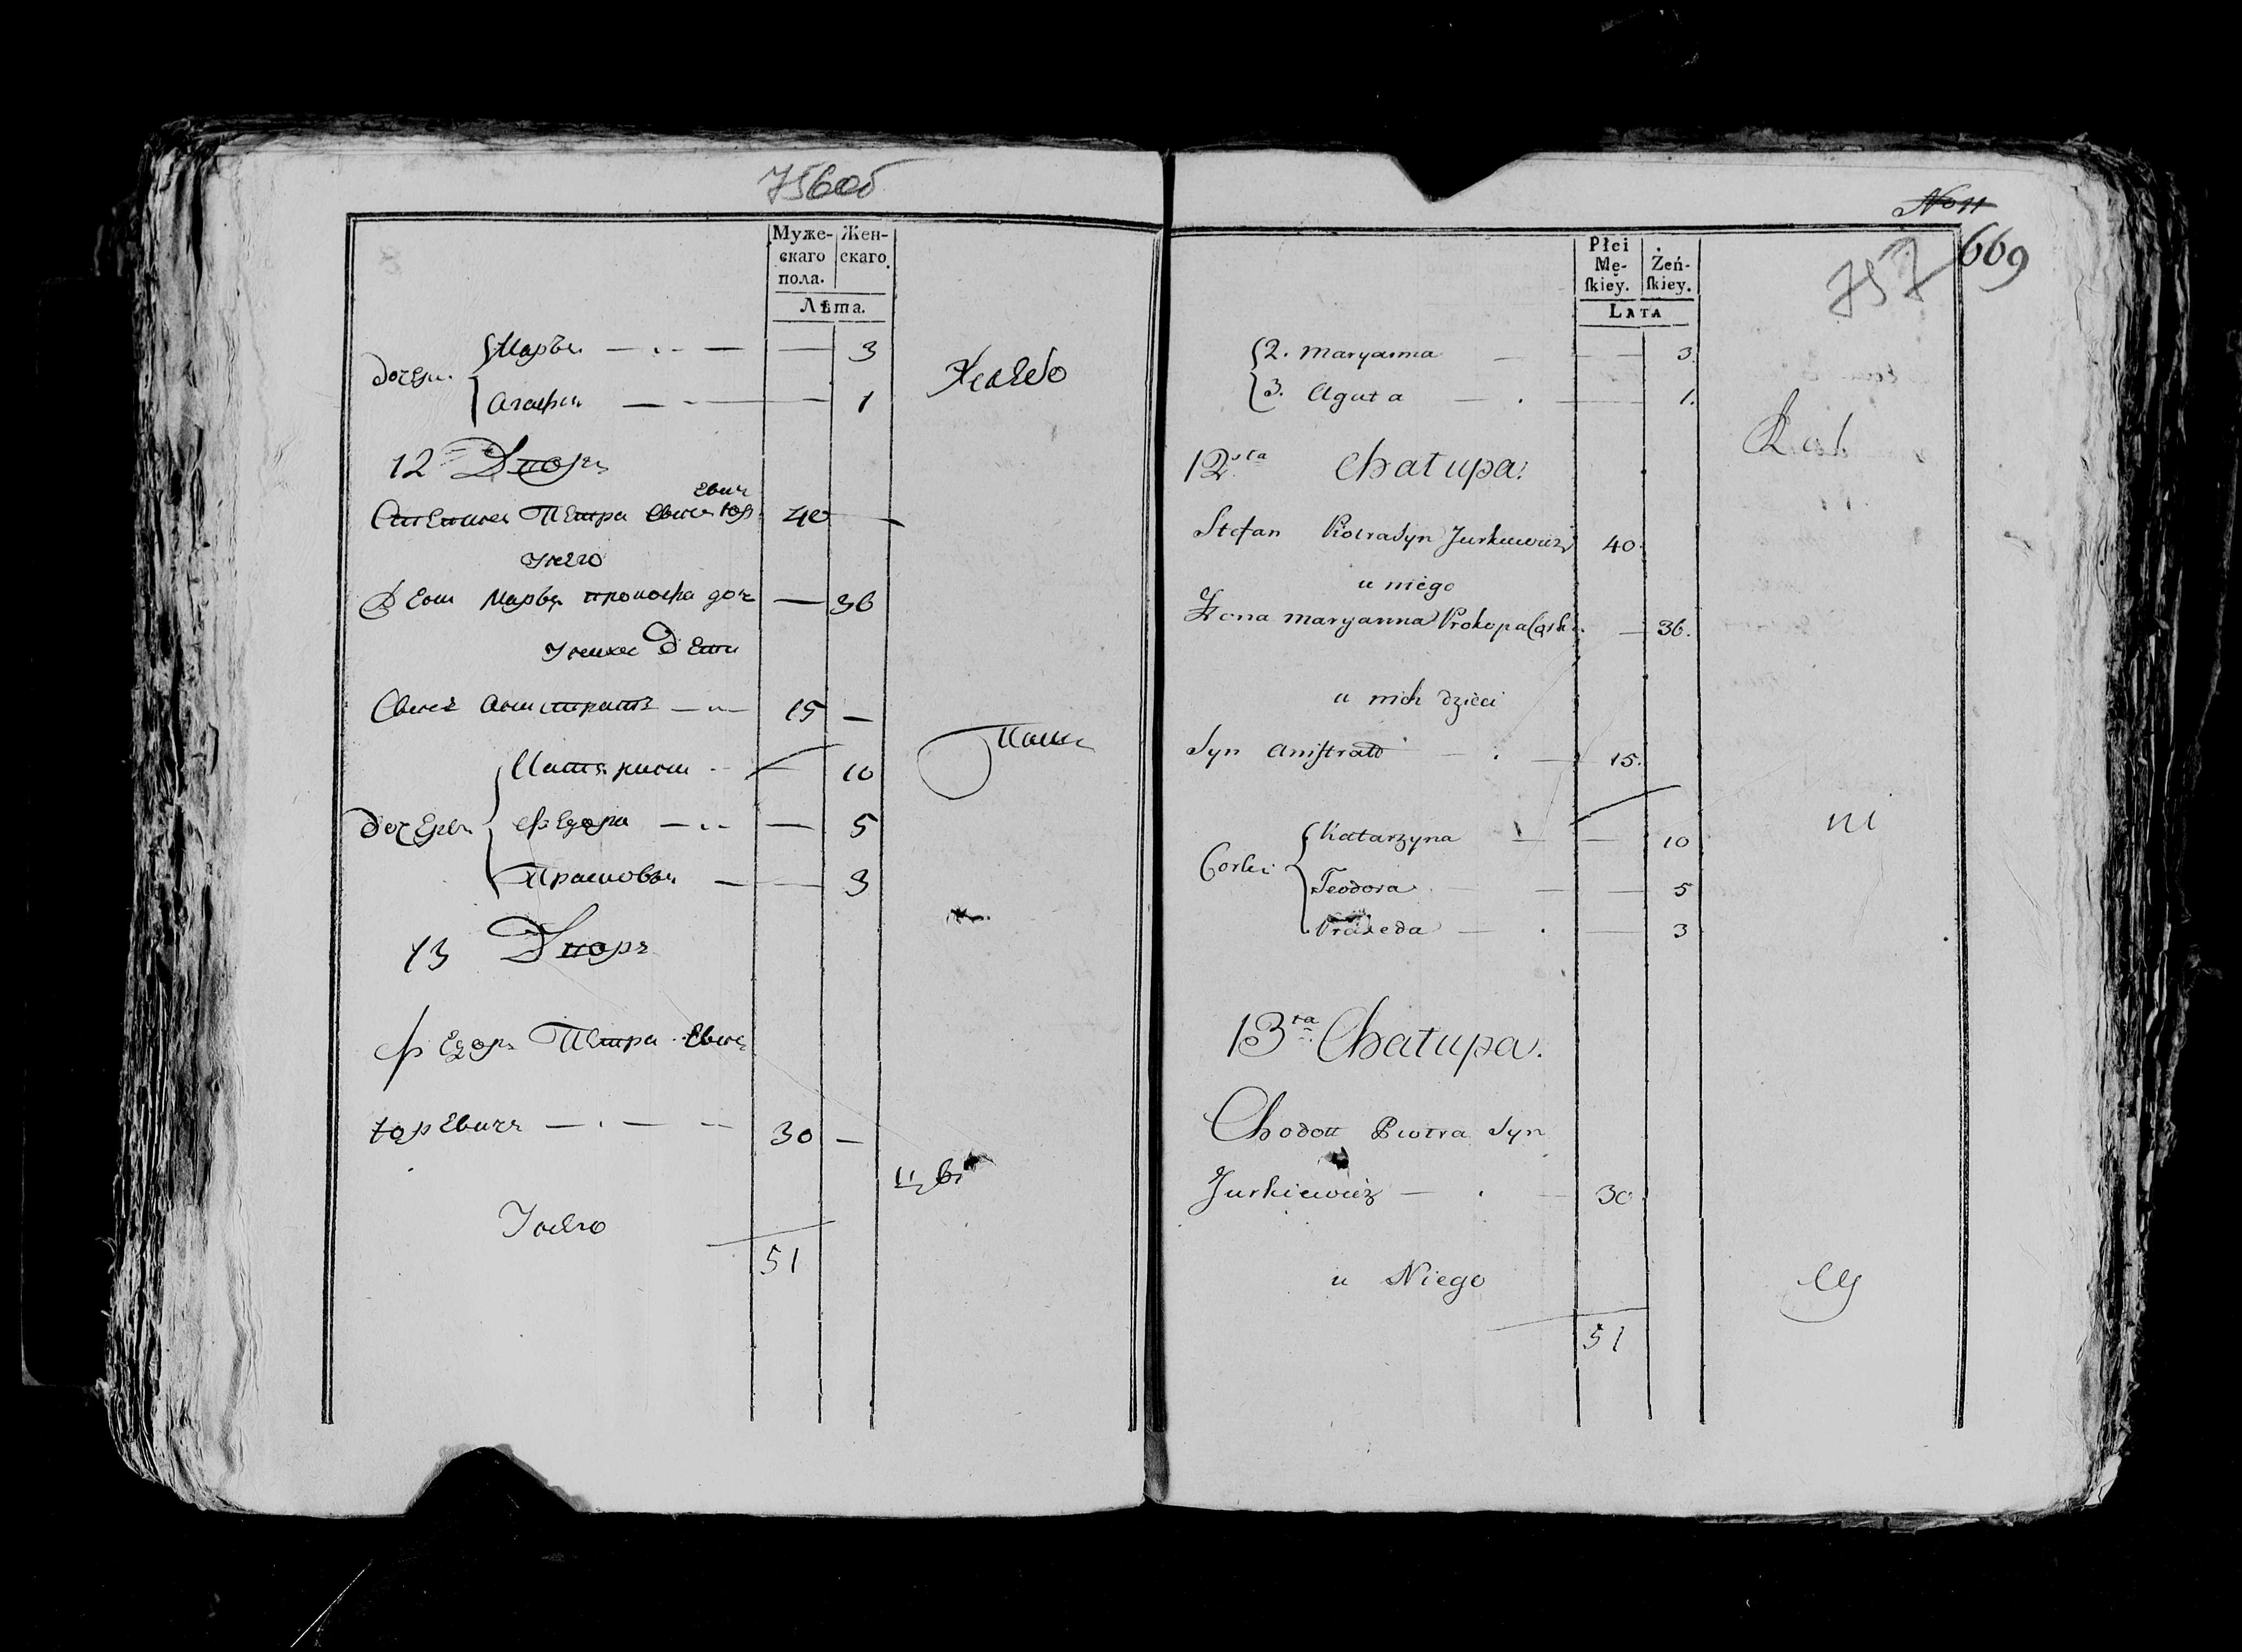 756об
Муже- Жен-
скаго скаго
пола.
Лѣта.
дочери
Марья 3
Агафия 1
12 Дворъ
евич
Степан Петра Сынъ Юр 40
У него
Жена Марья Прокофа доч 36
У них Дети
Сынъ Анистратъ 15
Дочери
Катярина 10
Федора 5
Прасковья 3
13 Дворъ
Федоръ Петра Сынъ
Юревичъ 30
У него
51
No 11
669
757
Płci Żeń-
Mę- ſkiey.
ſkiey.
Lata
2. Maryanna 3.
3. Agata 1.
12sta Chałupa.
Stefan Piotra Syn Jurkiewicz 40.
u niego
Żona Maryanna Prokopa Corka 36.
u nich dzieci
Syn Aniſtratt 15.
Corki
Katarzyna 10
Teodora 5
Praxeda 3
ni
13ta Chałupa.
Chodott Piotra Syn
Jurkiewicz 30.
u Niego
51